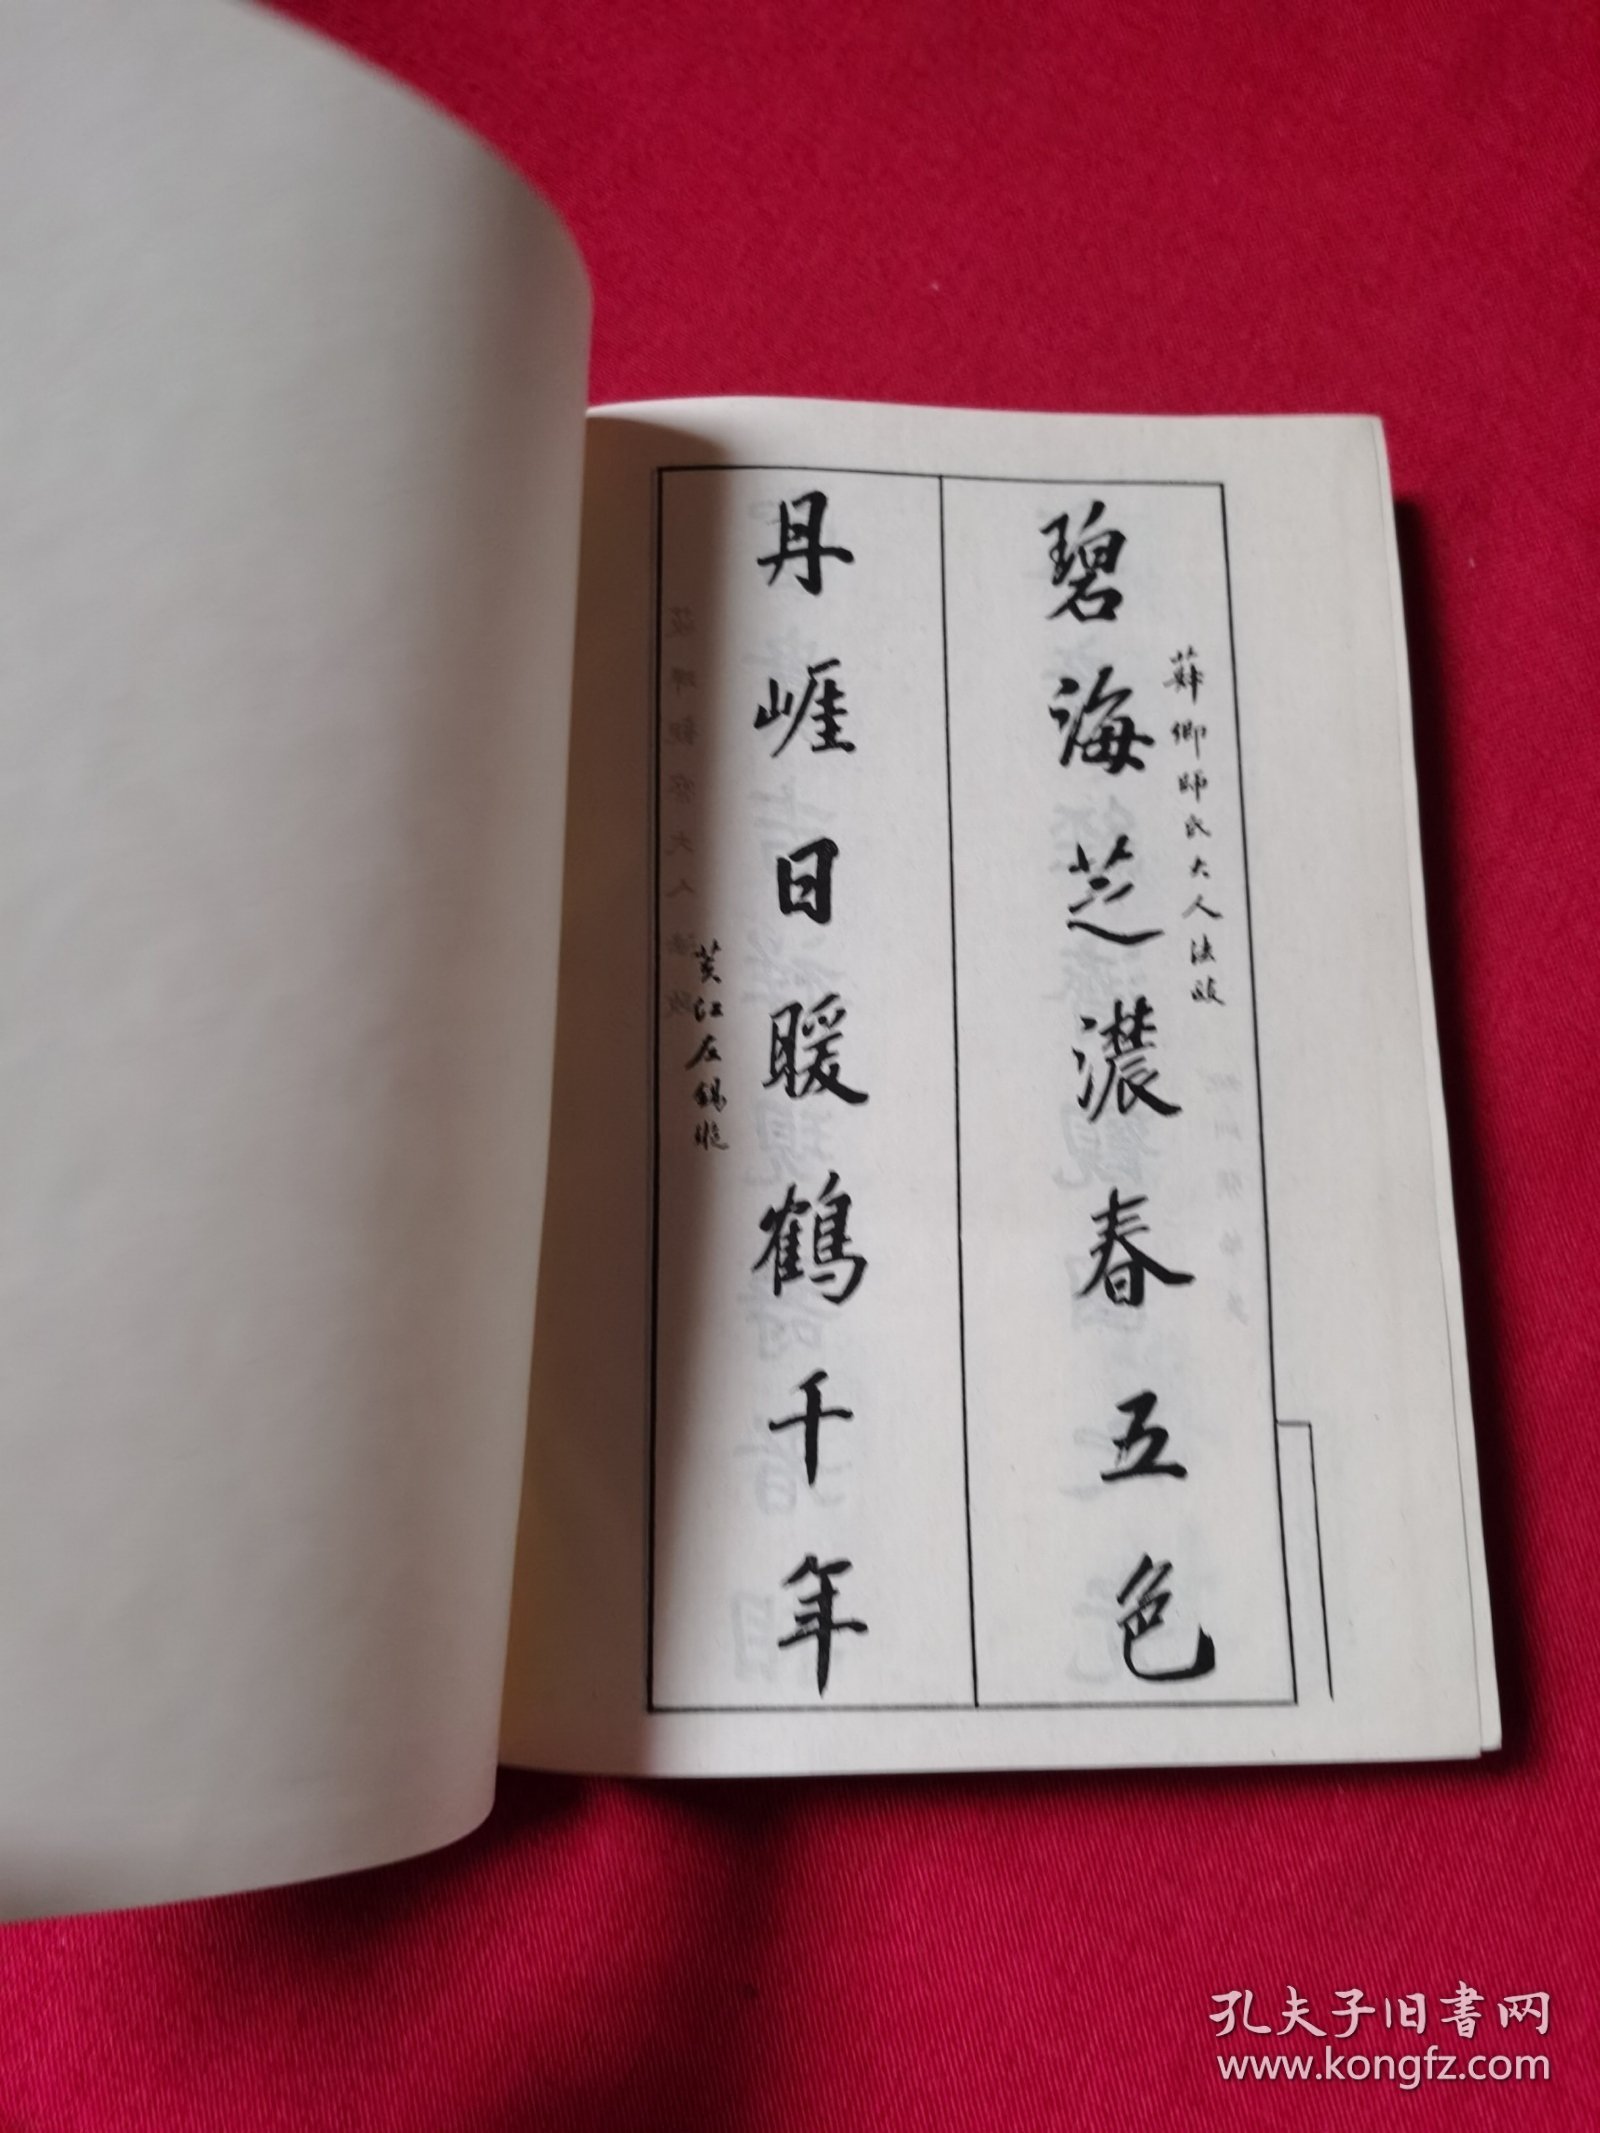 碧海芝濃春五色
卿師氏大人法政
丹崕日暖鶴千年
江左錫璇
孔夫子旧书网
www.kongfz.com